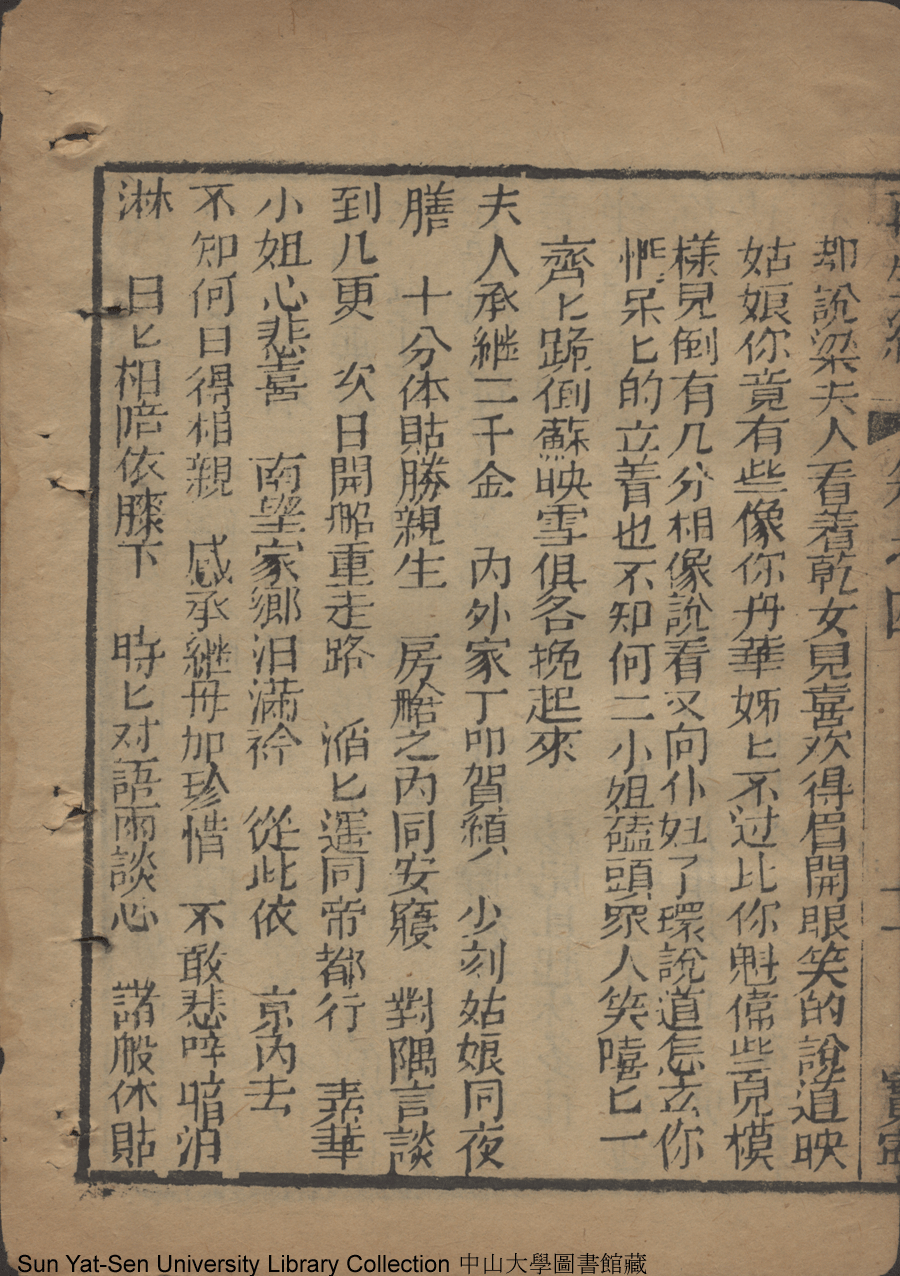 却說梁夫人看着乾女見喜欢得眉開眼笑的說道映
姑娘你竟有些像你丹華姊匕不过比你魁偉些皃模
樣見倒有几分相像說看又向仆妇了環說道怎厷你
們呆匕的立着也不知何二小姐磕頭眾人笑嘻匕一
齊匕跪倒蘇映雪俱各挽起來
夫人承繼二千金 內外家丁叩賀 少刻姑娘同夜
膳 十分体貼勝親生 房艙之內同安寢 對隅言談
到几更 次日開船重走路 滔匕運同帝都行 素華
小姐心悲喜 南望家鄉泪滿衿 從此依 京內去
不知何日得相親 感承継母加珍惜 不敢悲啼暗泪
淋 日匕相陪依膝下 時匕对語兩談心 諸般休貼
Sun Yat-Sen University Library Collection 中山大學圖書館藏